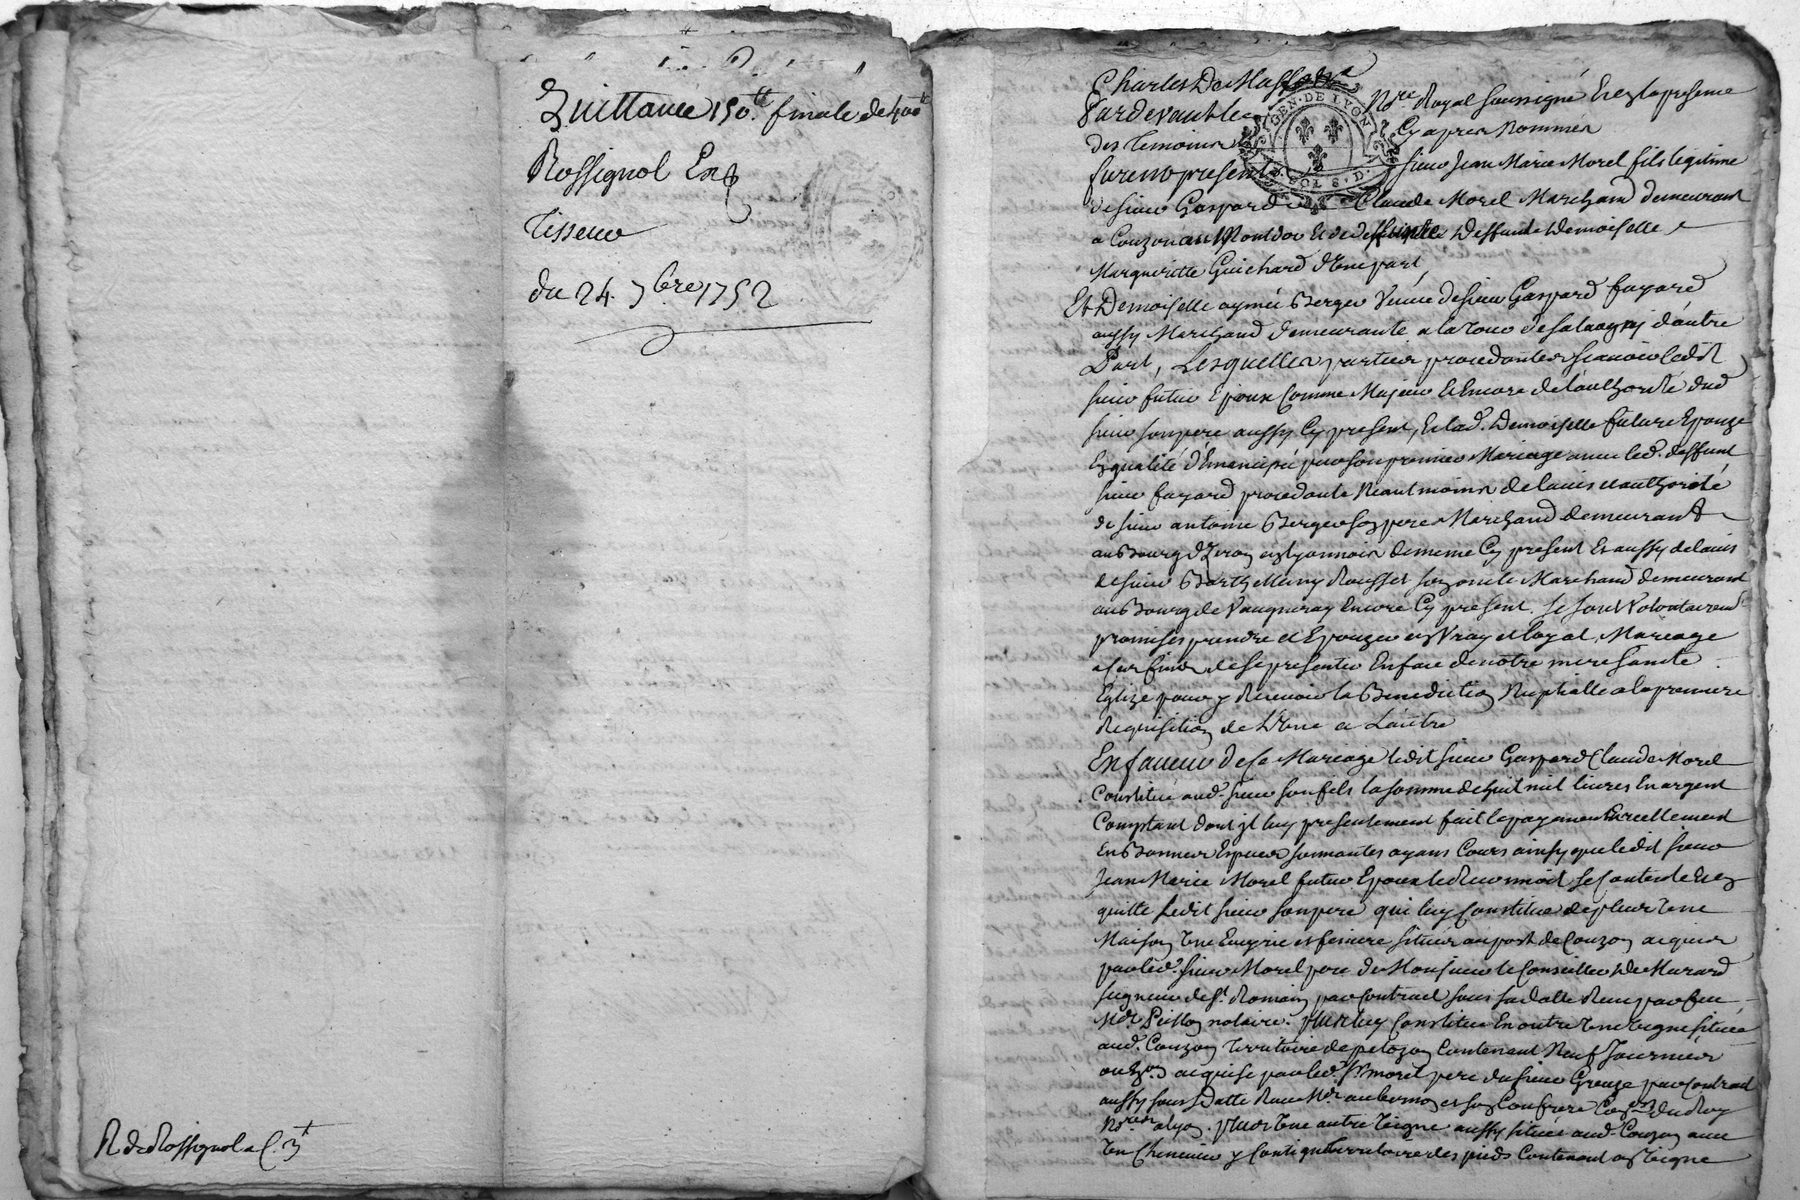 Quittance 150tt. finale de 400tt
Rossignol Ex
Tisseur
du 24. 7bre 1752
R de Rossignol a C. 3tt
Charles De Masso
Pardevant le Nore Royal soussigné Et en la presence
des Temoins Cy apres Nommés
furent presents sieur Jean Marie Morel fils legitime
de sieur Gaspard Claude Morel Marchand demeurant
a Couzon au Montdor et de deffunte Demoiselle
Margueritte Guichard d'Une part,
Et Demoiselle aymée Berger Veuve de sieur Gaspard fayard
aussy Marchand demeurante a la Tour de Salvagny d'autre
Part, Lesquelles parties procedantes scavoir ledit
sieur futur Epoux Comme Majeur Et Encore de l'authorité dud
sieur son pere aussy Cy present, Et lad. Demoiselle future Epouze
En qualité d'Emancipée par son premier Mariage avec led. deffunt
sieur fayard procedante Neantmoins de l'avis et authorité
de sieur antoine Berger son pere Marchand demeurant
au Bourg d'Izeron en lyonnois de meme Cy present Et aussy de l'avis
de sieur Barthellemy Rousset son oncle Marchand demeurant
au Bourg de Vaugneray Encore Cy present. se sont Volontairemt
promises prendre et Epouzer en Vray et loyal Mariage
a Ces fins de se presenter En face de notre mere Sainte
Eglize pour y Recevoir la Benediction Nuptialle a la premiere
Requisition de L'Une a L'autre
En faveur de Ce Mariage ledit sieur Gaspard Claude Morel
Constitue aud. sieur son fils la somme de huit mil livres En argent
Comptant dont jl luy presentement fait le payement reellement
En Bonnes Especes sonnantes ayant Cours ainsy que ledit sieur
Jean Marie Morel futur Epoux le Reconnoit se Contente Et en
quitte ledit sieur son pere qui luy Constitue de plus Une
Maison Une Ecurie et feniere situées au port de Couzon acquises
par led. sieur Morel pere de Monsieur le Conseiller De Murard
seigneur de St. Romain par Contract sous sa datte Recu par feu
Me Peillon notaire. Plus luy Constitue En outre Une Vigne située
aud. Couzon Territoire de pelozon Contenant Neuf Journées
ou Eon acquise par led. Sr. morel pere du sieur Greuze par Contract
aussy sous sa Datte Recu Me aubernon et son Confrere Coners du Roy
Nores a lyon. plus Une autre Vigne aussy située aud. Couzon avec
Un Chenevier y Contigu Territoire des pieds Contenant en Vigne
GEN. DE LYON
SOLS. D.